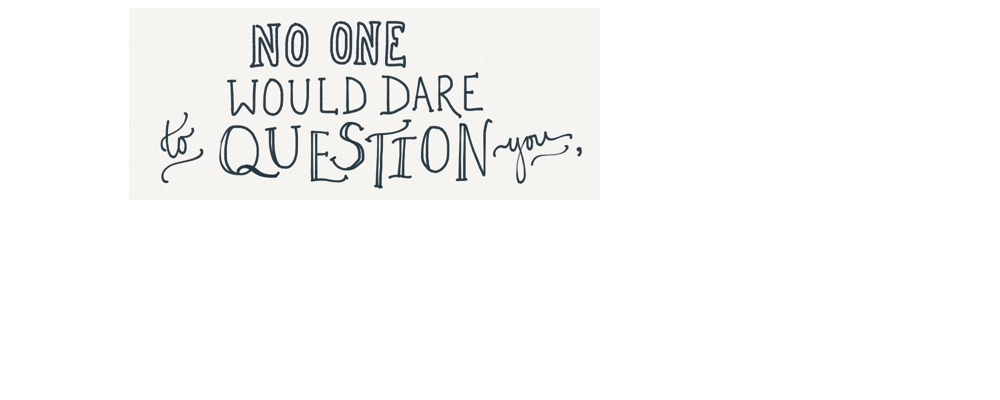 NO ONE
WOULD DARE
to QUESTION you,